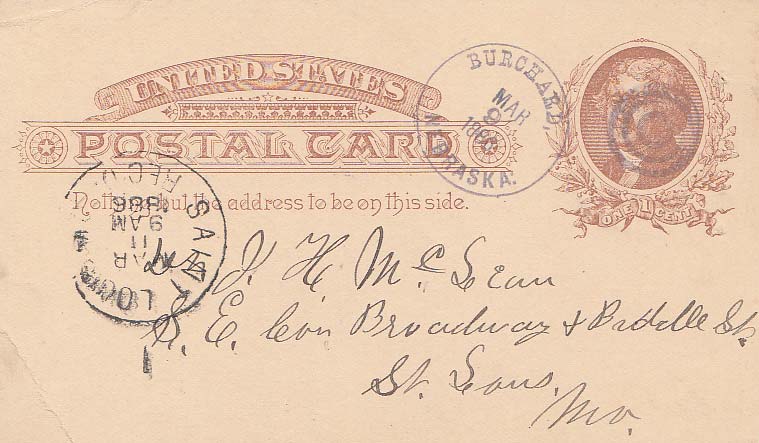 UNITED STATES
POSTAL CARD
Nothing but the address to be on this side.
ONE 1 CENT
BURCHARD,
MAR
1886
NEBRASKA.
SAINT LOUIS
REC'D.
1886
9 AM
11
MAR
1
J. H. McLean
S. E. Cor Broadway & Biddle St.
St. Louis,
Mo.